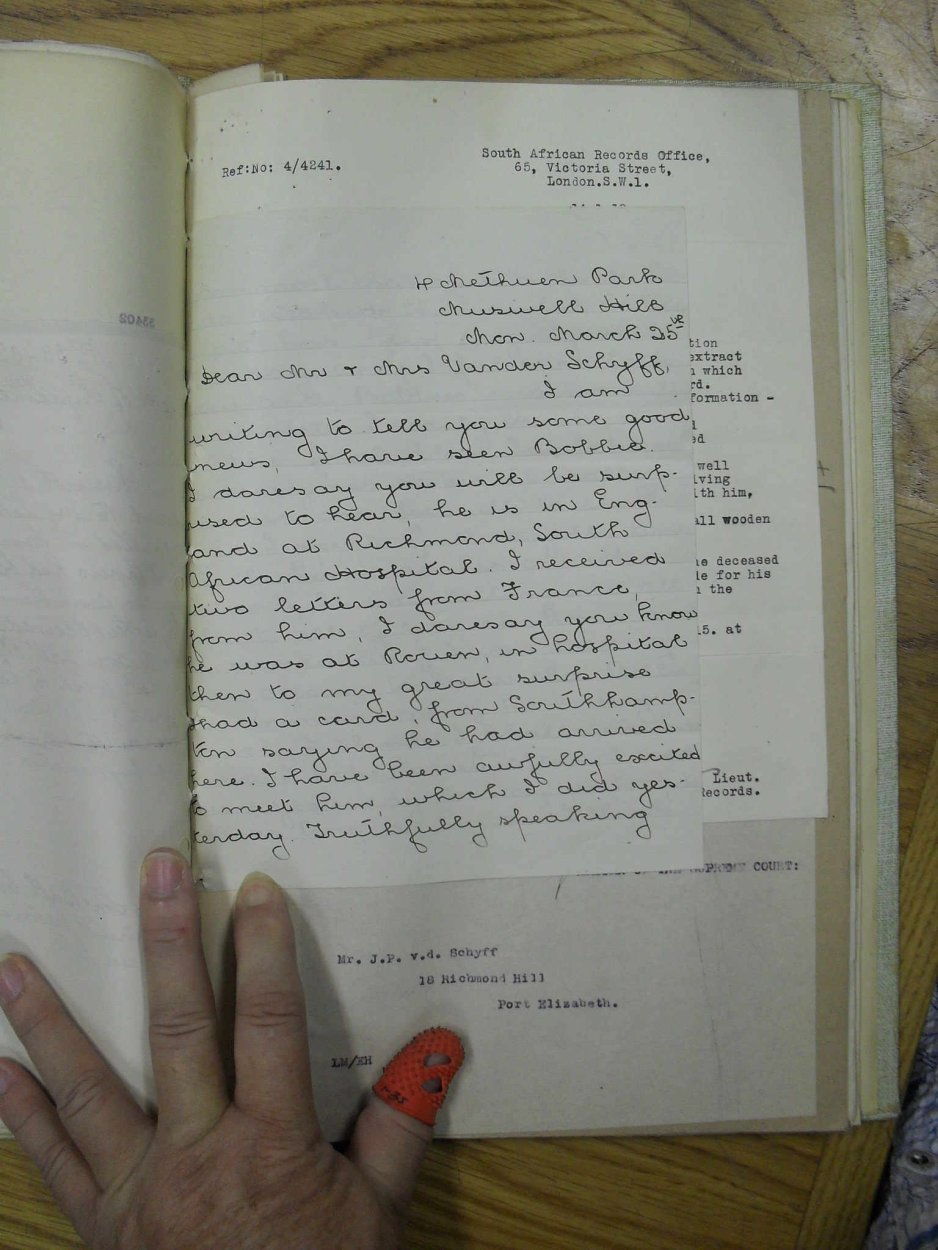 Ref:No: 4/4241.
South African Records Office,
65, Victoria Street,
London.S.W.1.
4 Methuen Park
Muswell Hill
Mon. March 25th
Dear Mr + Mrs Vander Schyff,
I am
writing to tell you some good
news, I have seen Bobbie.
I daresay you will be surp-
ised to hear, he is in Eng-
and at Richmond, South
African Hospital. I received
two letters from France,
from him, I daresay you know
he was at Rouen, in hospital
then to my great surprise
I had a card, from Southhamp-
ton saying he had arrived
here. I have been awfully excited
to meet him, which I did yes-
terday. Truthfully speaking
tion
extract
which
rd.
formation -
ed
well
lving
ith him,
all wooden
deceased
le for his
the
15. at
Lieut.
Records.
SUPREME COURT:
Mr. J.P. v.d. Schyff
18 Richmond Hill
Port Elizabeth.
LM/EH
33402